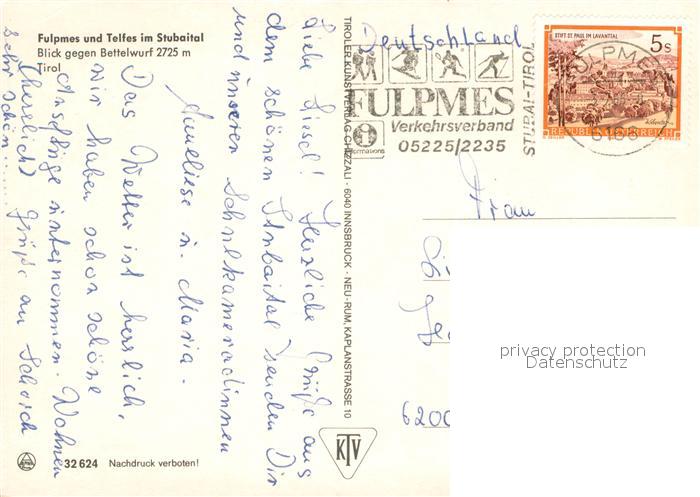 Fulpmes und Telfes im Stubaital
Blick gegen Bettelwurf 2725 m
Tirol
Liebe Liesel! Herzliche Grüße aus
dem schönen Stubaital senden Dir
und unseren Schulkameradinnen
Anneliese u. Maria.
Das Wetter ist herrlich,
wir haben schon schöne
Ausflüge unternommen. Wohnen
(herrlich) Grüße an Schorsch
sehr schön.....
TIROLER KUNSTVERLAG CHIZZALI · 6040 INNSBRUCK · NEU-RUM, KAPLANSTRASSE 10
KTV
32 624 Nachdruck verboten!
Deutschland
FULPMES
Verkehrsverband
05225/2235
STUBAI-TIROL
STIFT ST. PAUL IM LAVANTTAL
5 S
REPUBLIK ÖSTERREICH
FULPMES
Frau
6200
privacy protection
Datenschutz